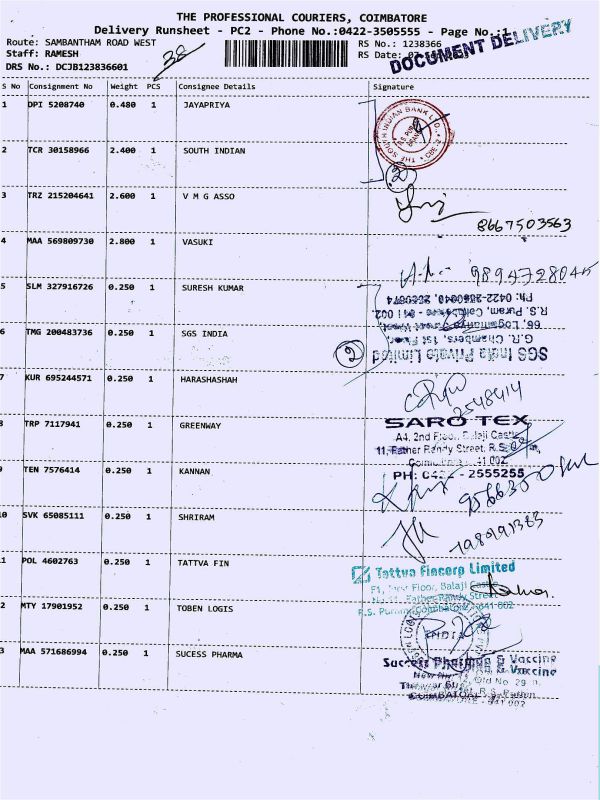 THE PROFESSIONAL COURIERS, COIMBATORE
Delivery Runsheet - PC2 - Phone No.:0422-3505555 - Page No.:1
Route: SAMBANTHAM ROAD WEST
RS No.: 1238366
Staff: RAMESH
38
RS Date:
DOCUMENT DELIVERY
DRS No.: DCJB123836601
S No Consignment No Weight PCS Consignee Details Signature
1 DPI 5208740 0.480 1 JAYAPRIYA
THE SOUTH INDIAN BANK LTD.
2 TCR 30158966 2.400 1 SOUTH INDIAN
2
3 TRZ 215204641 2.600 1 V M G ASSO
8667503563
4 MAA 569809730 2.800 1 VASUKI
9894728045
5 SLM 327916726 0.250 1 SURESH KUMAR
R.S. Puram, Coimbatore - 641 002
6 TMG 200483736 0.250 1 SGS INDIA
2
G.R. Chambers, 1st Floor,
SGS India Private Limited
7 KUR 695244571 0.250 1 HARASHASHAH
2548414
8 TRP 7117941 0.250 1 GREENWAY
SARO TEX
A4, 2nd Floor, Balaji Castle
11, Father Randy Street, R.S.
9 TEN 7576414 0.250 1 KANNAN
PH: 0422 - 2555255
0 SVK 65085111 0.250 1 SHRIRAM
1 POL 4602763 0.250 1 TATTVA FIN
Tattva Fincorp Limited
Floor, Balaji Castle
Father Randy Street
R.S. Puram, Coimbatore - 641 002
2 MTY 17901952 0.250 1 TOBEN LOGIS
INDIA
3 MAA 571686994 0.250 1 SUCESS PHARMA
Success Pharma & Vaccine
Old No 29